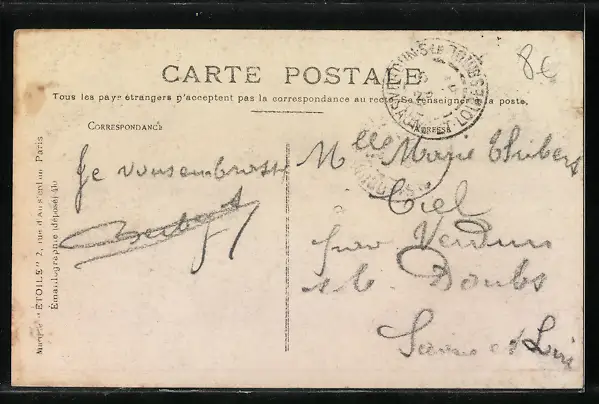 8€
CARTE POSTALE
Tous les pays étrangers n'acceptent pas la correspondance au recto. Se renseigner à la poste.
CORRESPONDANCE
ADRESSE
Je vous embrasse
Mlle Marie
Ciel
par Verdun
s le Doubs
Saône et Loire
Marque "ETOILE" 2, rue d'Aubenton Paris
Émaillographie (déposé)